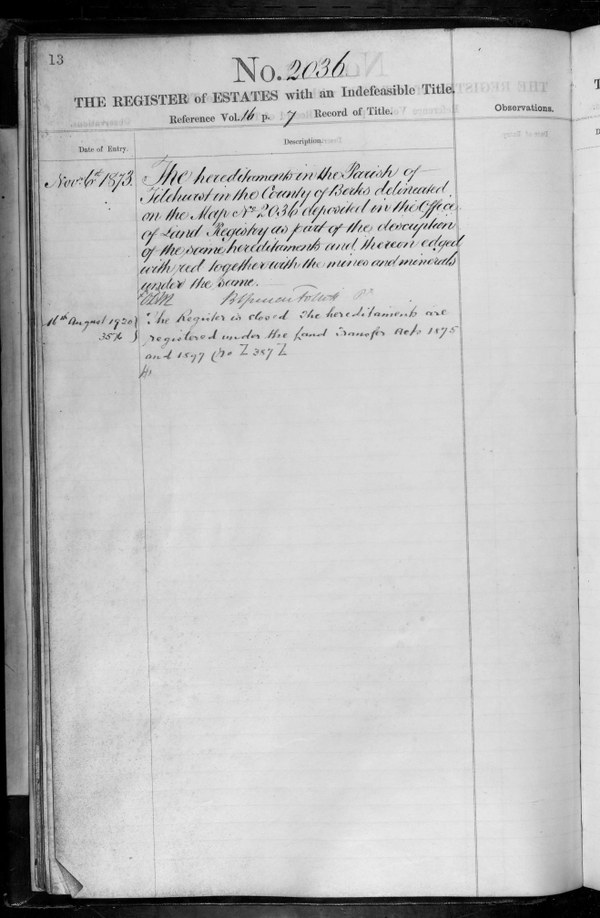 13
No. 2036
THE REGISTER of ESTATES with an Indefeasible Title.
Reference Vol. 16 p. 7 Record of Title.
Observations.
Date of Entry.
Description.
Nov: 6th 1873.
The hereditaments in the Parish of
Tilehurst in the County of Berks delineated
on the Map No 2036 deposited in the Office
of Land Registry as part of the description
of the same hereditaments and thereon edged
with red together with the mines and minerals
under the same.
Brent Spencer Follett
16th August 1920
The Register is closed The hereditaments are
registered under the Land Transfer Acts 1875
and 1897 (No Z 387 Z